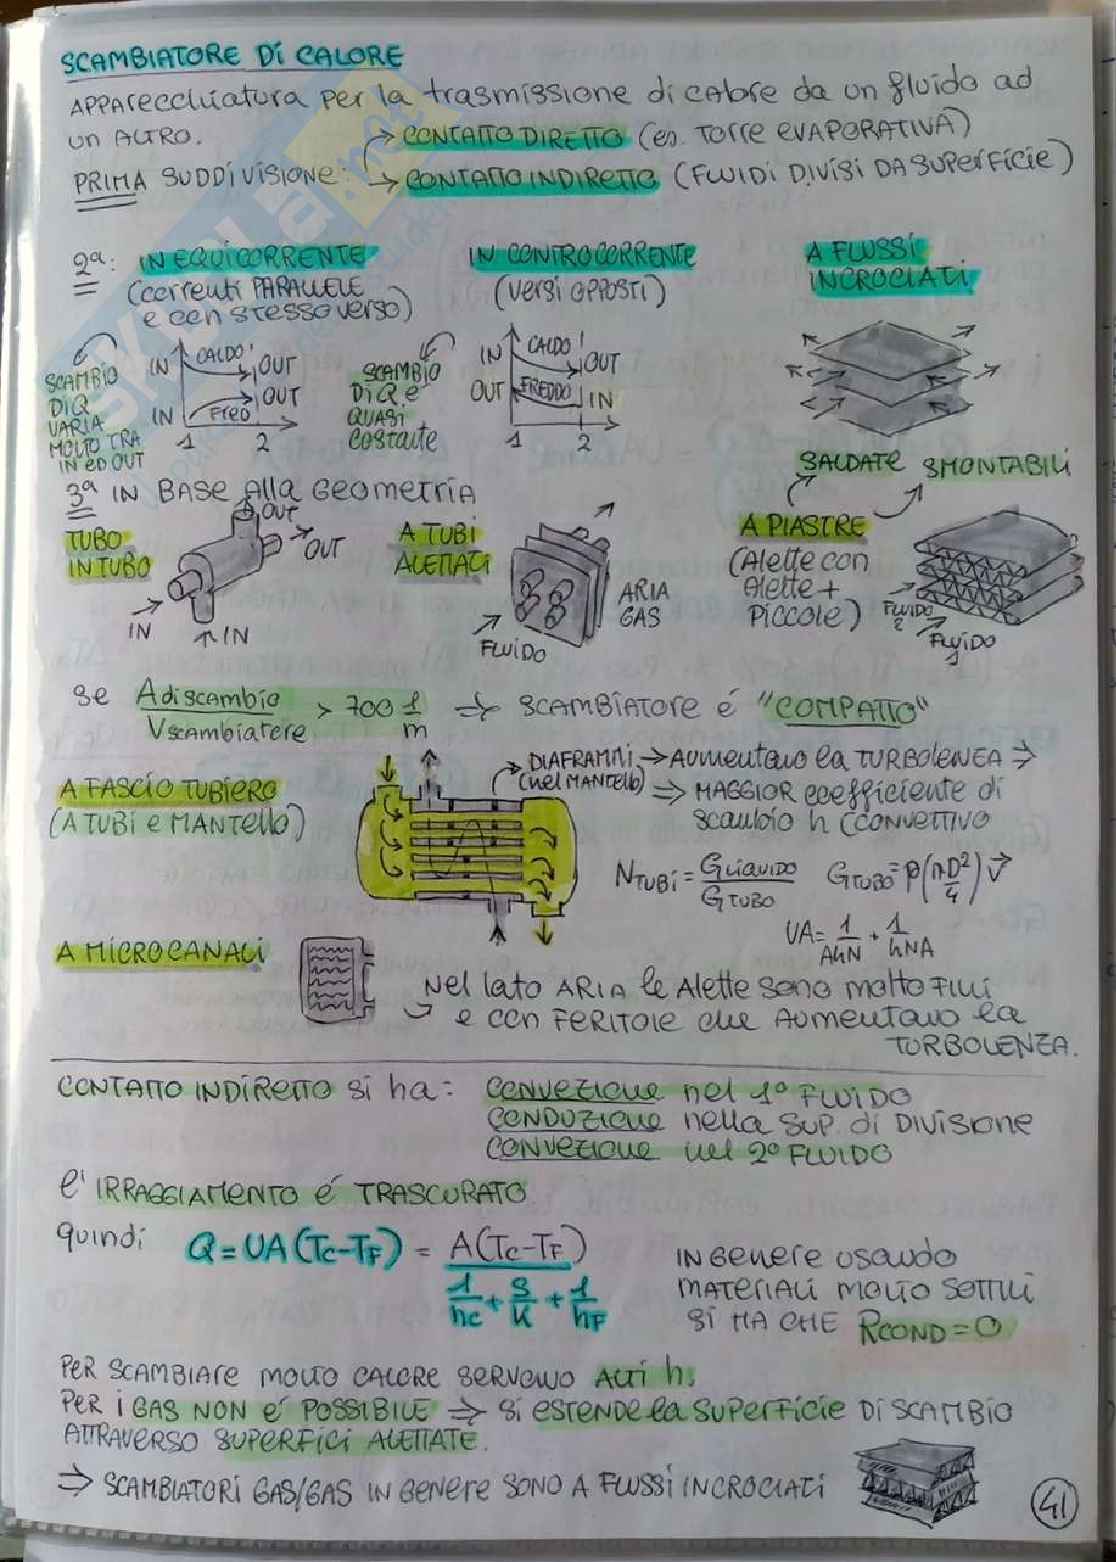 SCAMBIATORE Di CALORE
APPARecchiatura per la trasmissione di calore da un fluido ad
un ALTRO.
→ CONTATTO DIRETTO (es. TORRE EVAPORATIVA)
PRIMA SUDDIVISIONE: → CONTATTO INDIRETTO (FLUIDI DIVISI DA SUPERFICIE)
2ª: IN EQUICORRENTE
(correnti PARALLELE
e con stesso verso)
IN CONTROCORRENTE
(versi OPPOSTI)
A FLUSSI
INCROCIATI
SCAMBIO
Di Q
VARIA
MOLTO TRA
IN ed OUT
IN CALDO OUT
OUT
IN Freo
1 2
SCAMBIO
Di Q è
QUASI
Costante
IN CALDO OUT
OUT FREDDO IN
1 2
3ª IN BASE Alla GEOMETRIA
SALDATE SMONTABILI
TUBO
IN TUBO
OUT
OUT
IN
IN
A TUBI
ALETTATI
ARIA
GAS
FLUIDO
A PIASTRE
(Alette con
Alette +
Piccole)
FLUIDO
2
Fluido
1
se Adiscambio / Vscambiatore > 700 1/m ⇒ SCAMBIATORE é "COMPATTO"
A FASCIO TUBIERO
(A TUBI e MANTELLO)
→ DIAFRAMMI → AUMENTANO la TURBOLENZA ⇒
(nel MANTELLO) ⇒ MAGGIOR coefficiente di
scambio h (CONVETTIVO
NTUBI = GLIQUIDO / GTUBO GTUBO = ρ(πD²/4) v
UA = 1/AhN + 1/hNA
A MICROCANALI
Nel lato ARIA le Alette sono molto FINI
e con FERITOIE che AUMENTANO la
TURBOLENZA.
CONTATTO INDIRETTO si ha: CONVEZIONE nel 1º FLUIDO
CONDUZIONE nella SUP. di DIVISIONE
CONVEZIONE nel 2º FLUIDO
e' IRRAGGIAMENTO é TRASCURATO
quindi Q = UA(Tc-TF) = A(Tc-TF) / 1/hc + S/K + 1/hF
IN GENERE USANDO
MATERIALI MOLTO SOTTILI
SI HA CHE RCOND = 0
PER SCAMBIARE MOLTO CALORE SERVONO ALTI h.
PER i GAS NON é POSSIBILE ⇒ Si ESTENDE la SUPERFICIE DI SCAMBIO
ATTRAVERSO SUPERFICI ALETTATE.
⇒ SCAMBIATORI GAS/GAS IN GENERE SONO A FLUSSI INCROCIATI
41